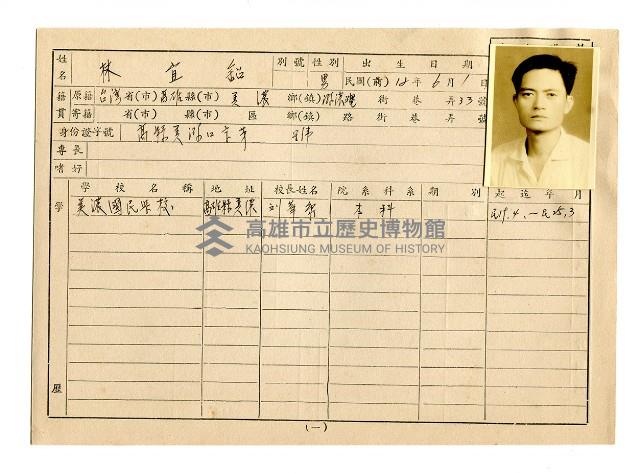 姓名 林宜 別號 性別 男 出生日期 民國(前)12年6月1日
籍貫 原籍 台灣省(市)高雄縣(市)美濃鄉(鎮) 街 巷 弄33號
寄籍 省(市) 縣(市) 區 鄉(鎮) 路 街 巷 弄 號
身份證字號 高縣美 口字 號
專長
嗜好
學歷
學校名稱 地址 校長姓名 院系科系 期別 起迄年月
美濃國民學校 高雄縣美濃 本科 民19.4.—民25.3
高雄市立歷史博物館
KAOHSIUNG MUSEUM OF HISTORY
(一)